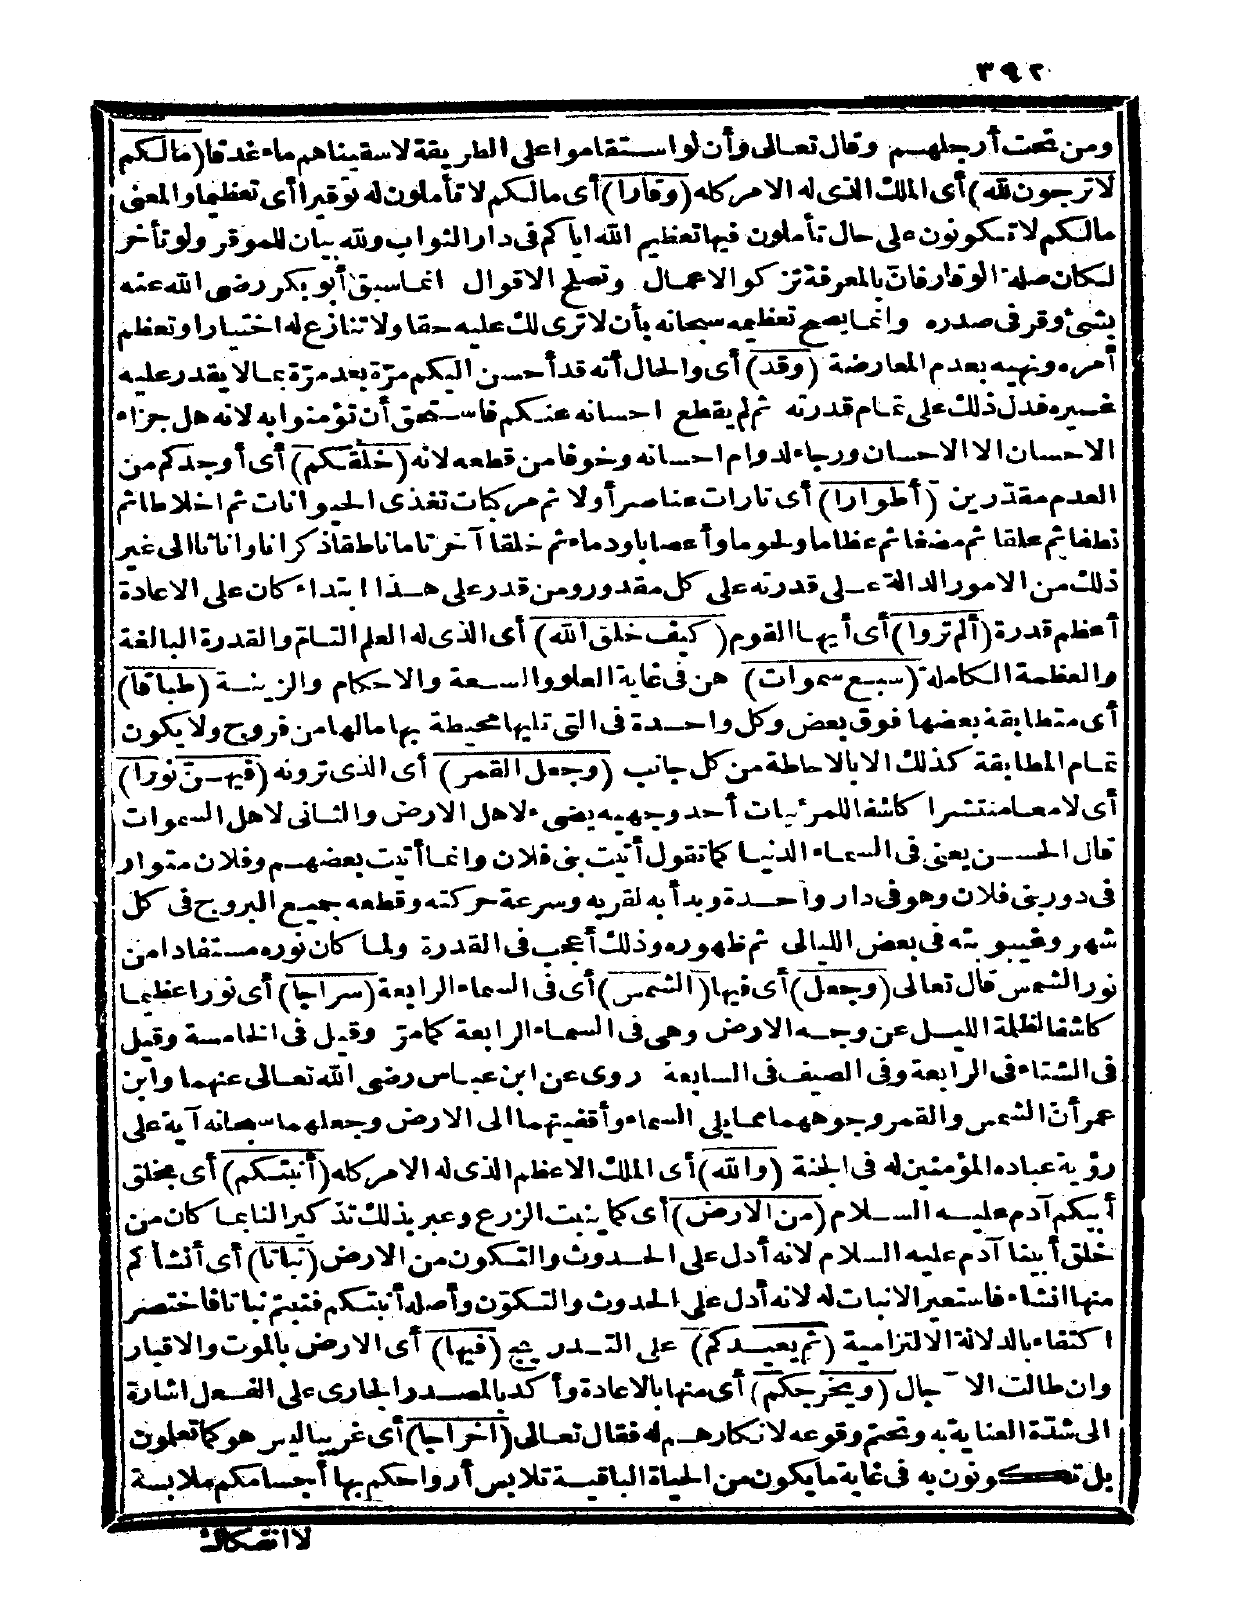 ٣٩٢
ومن تحت أرجلهـم وقال تعـالى وأن لو استقاموا على الطريقة لاسقيناهم ماء غدقا (مالكم
لا ترجون لله) أى الملك الذى له الامر كله (وقارا) أى مالـكم لا تأملون له توقيرا أى تعظيما والمعنى
مالـكم لا تـكونون على حال تأملون فيها تعظيم الله اياكم فى دار الثواب ولله بيان للموقر ولو تأخر
لـكان صلة الوقار فان بالمعرفة تزكو الاعمـال وتصلح الاقوال انما سبق أبو بكر رضى الله عنه
بشئ وقر فى صدره وانما يصح تعظيمه سبحانه بأن لا ترى لك عليه حقا ولا تنازع له اختيارا وتعظم
أمره ونهيه بعدم المعارضة (وقد) أى والحال أنه قد أحسن اليكم مرّة بعد مرّة بمـا لا يقدر عليه
غـيره فدل ذلك على تمـام قدرته ثم لم يقطع احسانه عنـكم فاسـتحق أن تؤمنوا به لانه هل جزاء
الاحسان الا الاحسان ورجاء لدوام احسانه وخوفا من قطعه لانه (خلقـكم) أى أوجدكم من
العدم مقدّرين (أطوارا) أى تارات عناصر أولا ثم مركبات تغذى الحيوانات ثم اخلاطا ثم
نطفا ثم علقا ثم مضغا ثم عظاما ولحوما وأعصابا ودماء ثم خلقا آخر تاما ناطقا ذكرانا واناثا الى غير
ذلك من الامور الدالة عـلى قدرته على كل مقدور ومن قدر على هـذا ابتداء كان على الاعادة
أعظم قدرة (ألم تروا) أى أيهـا القوم (كيف خلق الله) أى الذى له العلم التـامّ والقدرة البالغة
والعظمة الـكاملة (سبـع سموات) هن فى غاية العلو والسـعة والاحكام والزينـة (طباقا)
أى متطابقة بعضها فوق بعض وكل واحـدة فى التى تليها محيطة بها مالها من فروج ولا يكون
تمـام المطابقة كذلك الا بالاحاطة من كل جانب (وجعل القمر) أى الذى ترونه (فيهـنّ نورا)
أى لامعـا منتشرا كاشفا للمرئيات أحد وجهيه يضىء لاهل الارض والثانى لاهل السموات
قال الحسـن يعنى فى السماء الدنيـا كما تقول أتيت بنى فلان وانمـا أتيت بعضهـم وفلان متوار
فى دور بنى فلان وهو فى دار واحـدة وبدأ به لقربه وسرعة حركته وقطعه جميـع البروج فى كل
شهر وغيبوبته فى بعض الليالى ثم ظهوره وذلك أعجب فى القدرة ولما كان نوره مستفادا من
نور الشمس قال تعالى (وجعل) أى فيها (الشمس) أى فى السماء الرابعة (سراجا) أى نورا عظيمـا
كاشفا لظلمة الليـل عن وجـه الارض وهى فى السمـاء الرابعة كما مرّ وقيل فى الخامسة وقيل
فى الشتاء فى الرابعة وفى الصيف فى السابعة روى عن ابن عبـاس رضى الله تعـالى عنهما وابن
عمر أنّ الشمس والقمر وجوههما مما يلى السماء وأقفيتهما الى الارض وجعلهما سبحانه آية على
رؤية عباده المؤمنين له فى الجنة (والله) أى الملك الاعظم الذى له الامر كله (أنبتـكم) أى بخلق
أبيكم آدم عليـه السـلام (من الارض) أى كما ينبت الزرع وعبر بذلك تذكيرا لنا بمـا كان من
خلق أبينا آدم عليه السلام لانه أدل على الحـدوث والتـكون من الارض (نباتا) أى أنشأكم
منها انشاء فاستعير الانبات له لانه أدل على الحدوث والتـكوّن وأصله أنبتـكم فنبتم نباتا فاختصر
اكتفاء بالدلالة الالتزامية (ثم يعيـدكم) على التـدريج (فيها) أى الارض بالموت والاقبار
وان طالت الآجال (ويخرجكم) أى منها بالاعادة وأكد بالمصـدر الجارى على الفـعل اشارة
الى شدّة العناية به وتحتم وقوعه لانكارهـم له فقال تعـالى (اخراجا) أى غريبا ليس هو كما تعلمون
بل تـكونون به فى غاية ما يكون من الحياة الباقيـة تلابس أرواحكم بها أجسامكم ملابسة
لا انفكاك